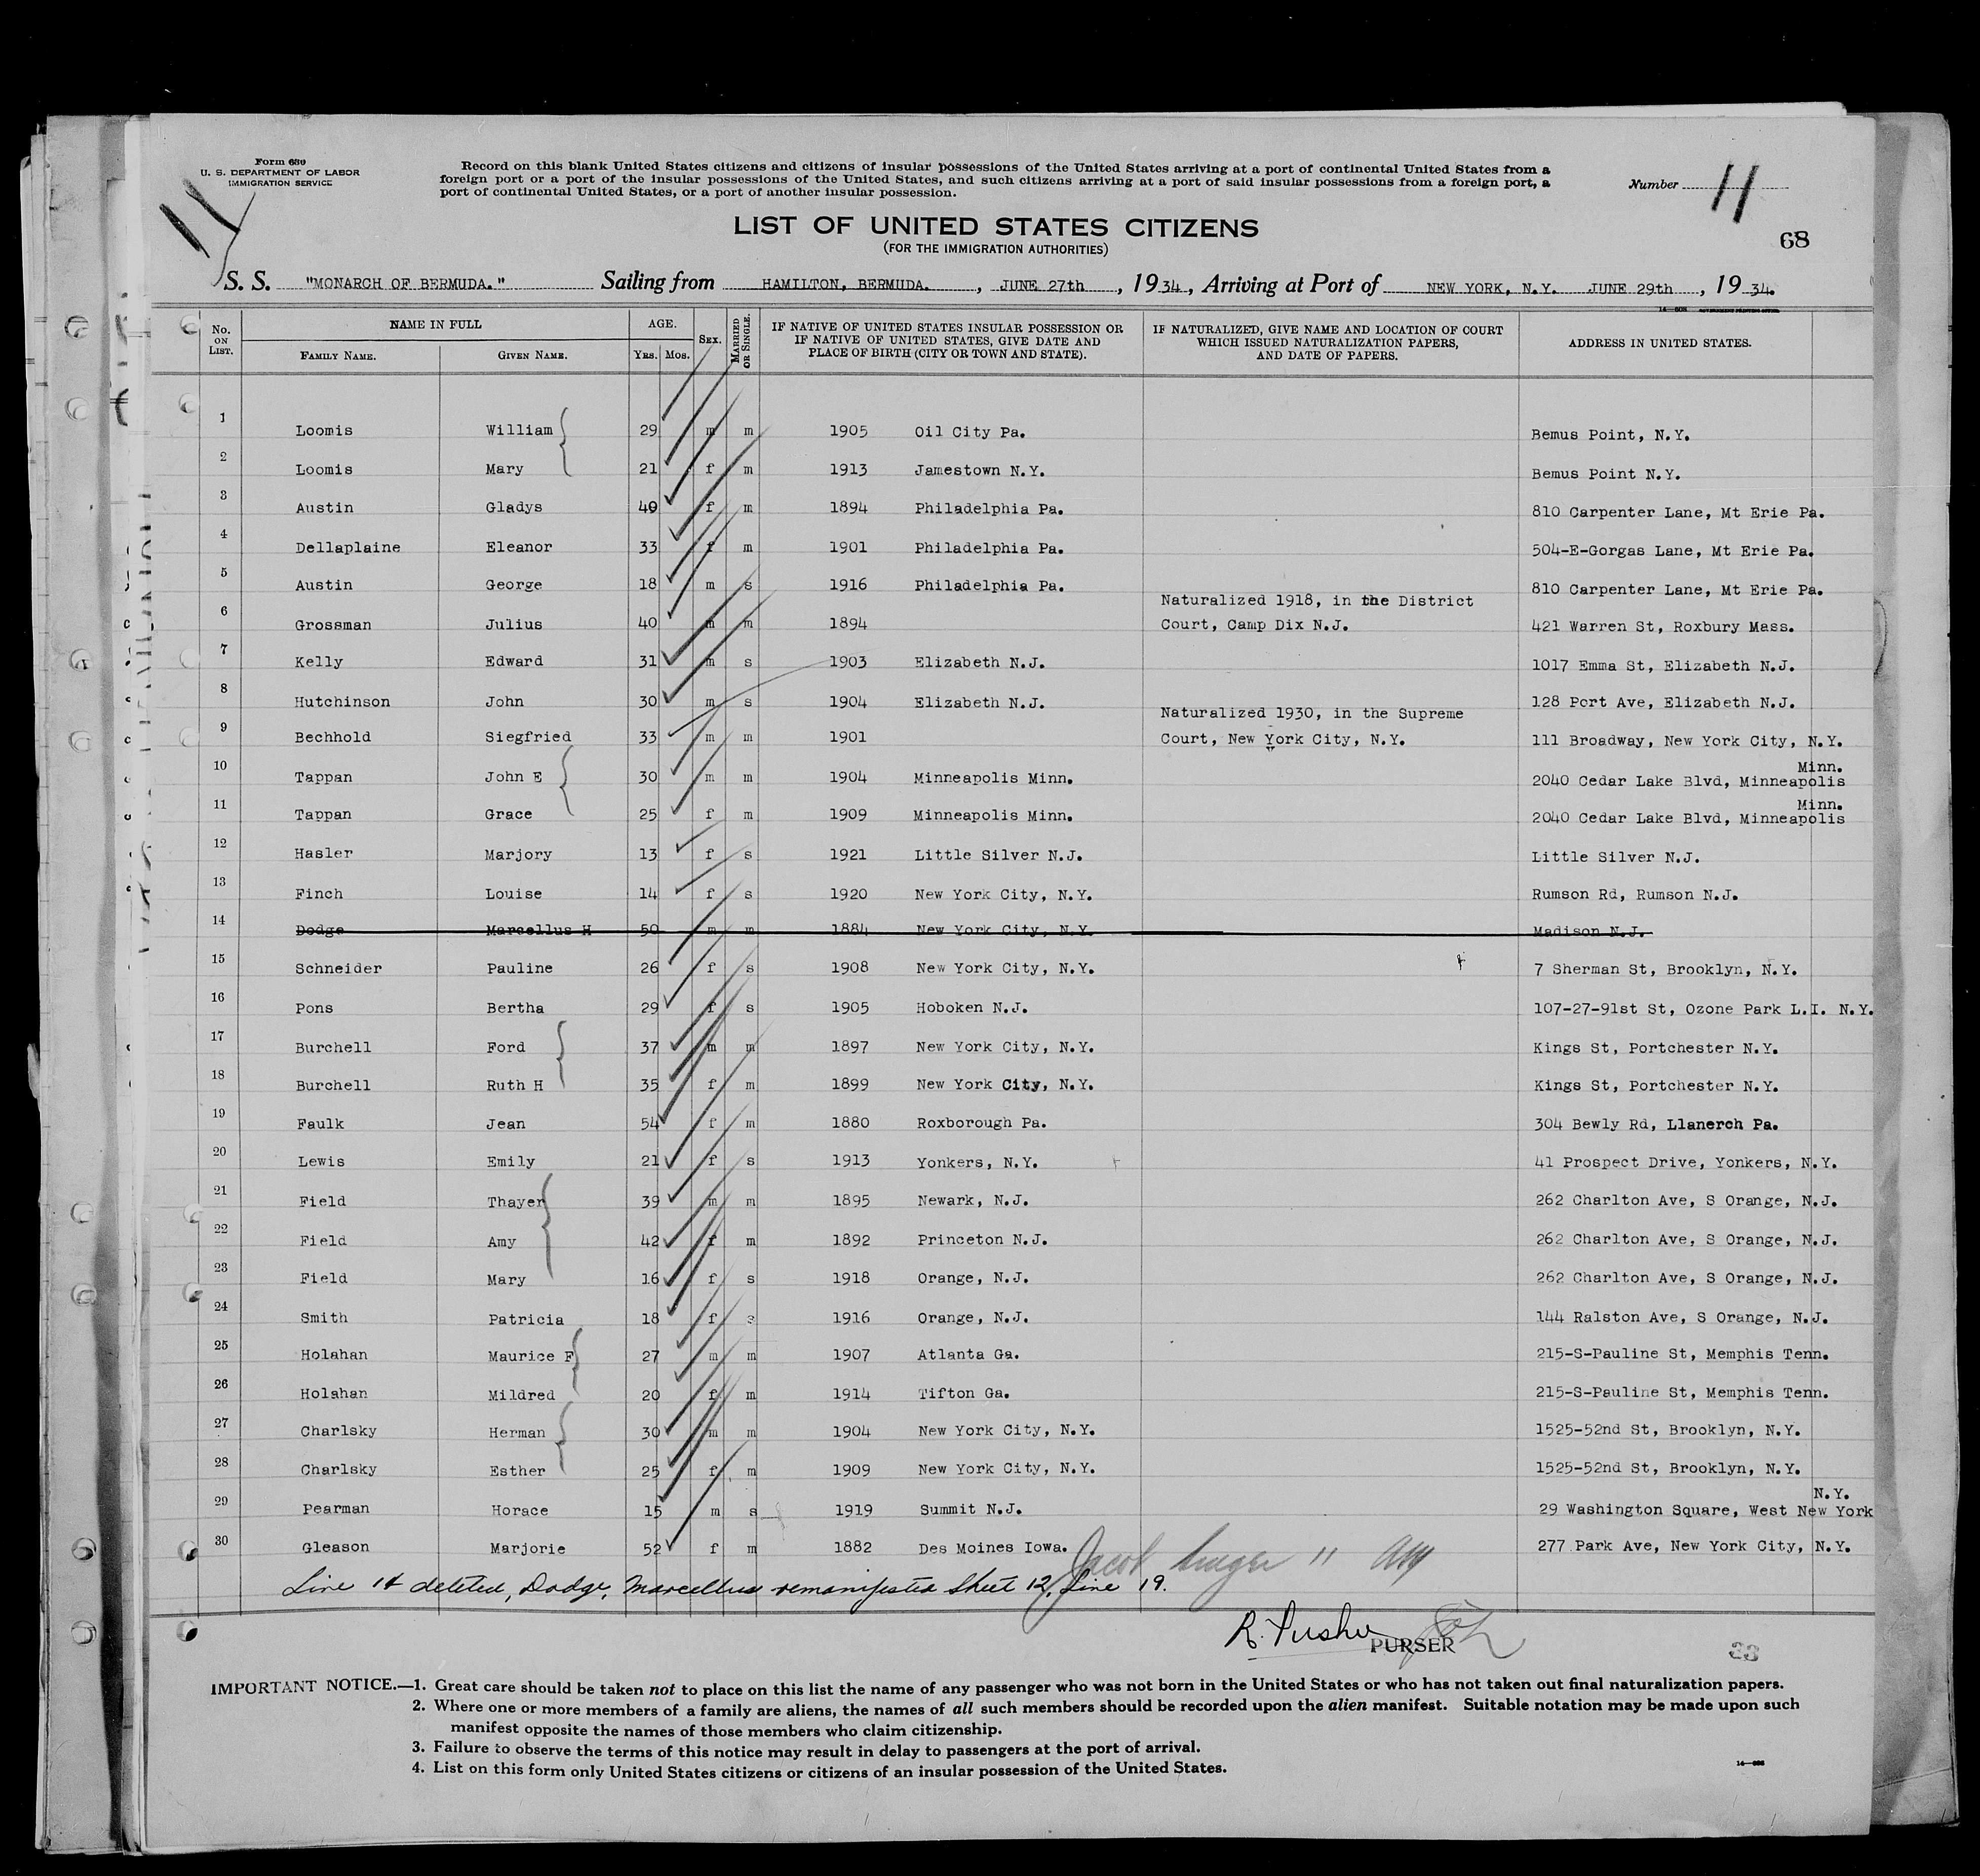 Form 630
U. S. DEPARTMENT OF LABOR
IMMIGRATION SERVICE
Record on this blank United States citizens and citizens of insular possessions of the United States arriving at a port of continental United States from a
foreign port or a port of the insular possessions of the United States, and such citizens arriving at a port of said insular possessions from a foreign port, a
port of continental United States, or a port of another insular possession.
Number 11
11
LIST OF UNITED STATES CITIZENS
(FOR THE IMMIGRATION AUTHORITIES)
68
S. S. "MONARCH OF BERMUDA." Sailing from HAMILTON, BERMUDA. , JUNE 27th , 1934, Arriving at Port of NEW YORK, N.Y. JUNE 29th , 1934.
No. ON LIST. NAME IN FULL AGE. SEX. MARRIED OR SINGLE. IF NATIVE OF UNITED STATES INSULAR POSSESSION OR IF NATIVE OF UNITED STATES, GIVE DATE AND PLACE OF BIRTH (CITY OR TOWN AND STATE). IF NATURALIZED, GIVE NAME AND LOCATION OF COURT WHICH ISSUED NATURALIZATION PAPERS, AND DATE OF PAPERS. ADDRESS IN UNITED STATES.
FAMILY NAME. GIVEN NAME. YRS. MOS.
1 Loomis William 29 m m 1905 Oil City Pa. Bemus Point, N.Y.
2 Loomis Mary 21 f m 1913 Jamestown N.Y. Bemus Point N.Y.
3 Austin Gladys 40 f m 1894 Philadelphia Pa. 810 Carpenter Lane, Mt Erie Pa.
4 Dellaplaine Eleanor 33 f m 1901 Philadelphia Pa. 504-E-Gorgas Lane, Mt Erie Pa.
5 Austin George 18 m s 1916 Philadelphia Pa. 810 Carpenter Lane, Mt Erie Pa.
Naturalized 1918, in the District
6 Grossman Julius 40 m m 1894 Court, Camp Dix N.J. 421 Warren St, Roxbury Mass.
7 Kelly Edward 31 m s 1903 Elizabeth N.J. 1017 Emma St, Elizabeth N.J.
8 Hutchinson John 30 m s 1904 Elizabeth N.J. 128 Port Ave, Elizabeth N.J.
Naturalized 1930, in the Supreme
9 Bechhold Siegfried 33 m m 1901 Court, New York City, N.Y. 111 Broadway, New York City, N.Y.
Minn.
10 Tappan John E 30 m m 1904 Minneapolis Minn. 2040 Cedar Lake Blvd, Minneapolis
Minn.
11 Tappan Grace 25 f m 1909 Minneapolis Minn. 2040 Cedar Lake Blvd, Minneapolis
12 Hasler Marjory 13 f s 1921 Little Silver N.J. Little Silver N.J.
13 Finch Louise 14 f s 1920 New York City, N.Y. Rumson Rd, Rumson N.J.
14 Dodge Marcellus H 50 m m 1884 New York City, N.Y. Madison N.J.
15 Schneider Pauline 26 f s 1908 New York City, N.Y. 7 Sherman St, Brooklyn, N.Y.
16 Pons Bertha 29 f s 1905 Hoboken N.J. 107-27-91st St, Ozone Park L.I. N.Y.
17 Burchell Ford 37 m m 1897 New York City, N.Y. Kings St, Portchester N.Y.
18 Burchell Ruth H 35 f m 1899 New York City, N.Y. Kings St, Portchester N.Y.
19 Faulk Jean 54 f m 1880 Roxborough Pa. 304 Bewly Rd, Llanerch Pa.
20 Lewis Emily 21 f s 1913 Yonkers, N.Y. 41 Prospect Drive, Yonkers, N.Y.
21 Field Thayer 39 m m 1895 Newark, N.J. 262 Charlton Ave, S Orange, N.J.
22 Field Amy 42 f m 1892 Princeton N.J. 262 Charlton Ave, S Orange, N.J.
23 Field Mary 16 f s 1918 Orange, N.J. 262 Charlton Ave, S Orange, N.J.
24 Smith Patricia 18 f s 1916 Orange, N.J. 144 Ralston Ave, S Orange, N.J.
25 Holahan Maurice F 27 m m 1907 Atlanta Ga. 215-S-Pauline St, Memphis Tenn.
26 Holahan Mildred 20 f m 1914 Tifton Ga. 215-S-Pauline St, Memphis Tenn.
27 Charlsky Herman 30 m m 1904 New York City, N.Y. 1525-52nd St, Brooklyn, N.Y.
28 Charlsky Esther 25 f m 1909 New York City, N.Y. 1525-52nd St, Brooklyn, N.Y.
N.Y.
29 Pearman Horace 15 m s 1919 Summit N.J. 29 Washington Square, West New York
30 Gleason Marjorie 52 f m 1882 Des Moines Iowa. 277 Park Ave, New York City, N.Y.
Jacob
Line 14 deleted, Dodge, Marcellus remanifested sheet 12, Line 19.
PURSER
33
IMPORTANT NOTICE.—1. Great care should be taken not to place on this list the name of any passenger who was not born in the United States or who has not taken out final naturalization papers.
2. Where one or more members of a family are aliens, the names of all such members should be recorded upon the alien manifest. Suitable notation may be made upon such
manifest opposite the names of those members who claim citizenship.
3. Failure to observe the terms of this notice may result in delay to passengers at the port of arrival.
4. List on this form only United States citizens or citizens of an insular possession of the United States.